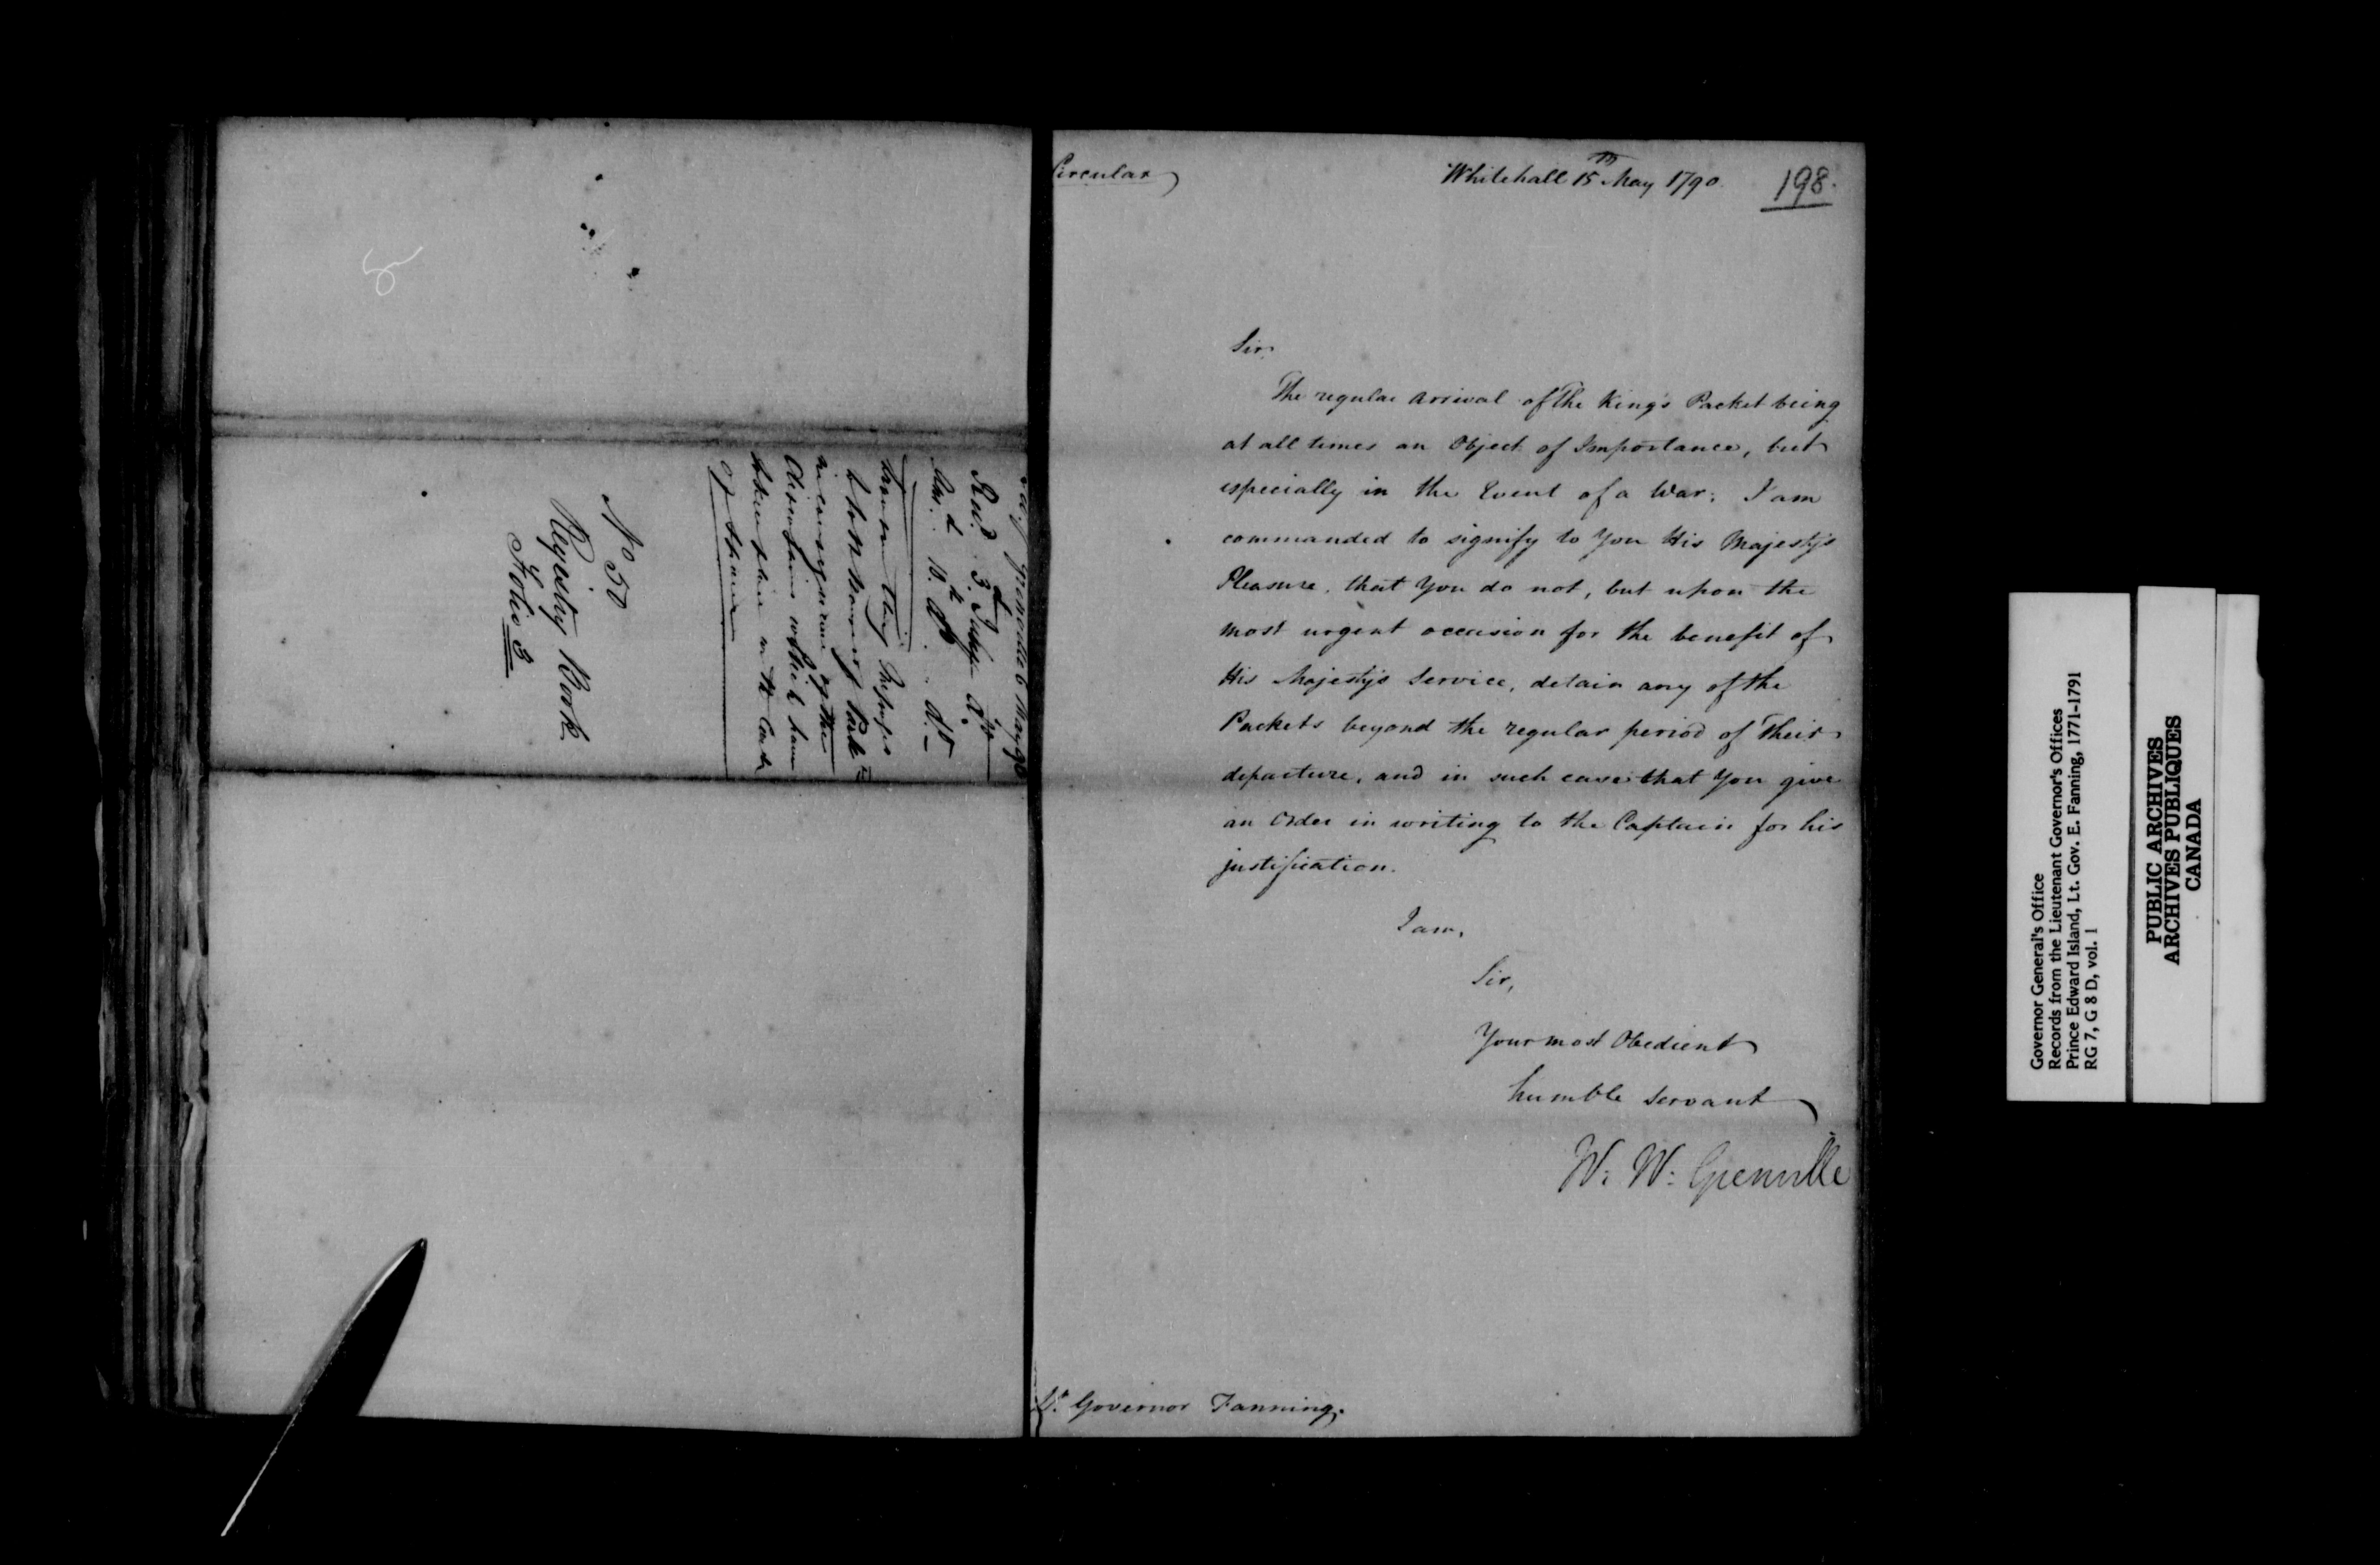 Grenville 6 May 90
Rec.d 3.d July d.o
An.d 10.th d.o
of Spain
No 50
Registry Book
Folio 3
Circular
Whitehall 15th May 1790.
198.
Sir
The regular Arrival of the King's Packet being
at all times an Object of Importance, but
especially in the Event of a War; I am
commanded to signify to You His Majesty's
Pleasure, that You do not, but upon the
most urgent occasion for the benefit of
His Majesty's Service, detain any of the
Packets beyond the regular period of Their
departure, and in such case that You give
an Order in writing to the Captain for his
justification.
I am,
Sir,
Your most Obedient
humble Servant
W: W: Grenville
Lt. Governor Fanning.
Governor General's Office
Records from the Lieutenant Governor's Offices
Prince Edward Island, Lt. Gov. E. Fanning, 1771-1791
RG 7, G 8 D, vol. 1
PUBLIC ARCHIVES
ARCHIVES PUBLIQUES
CANADA